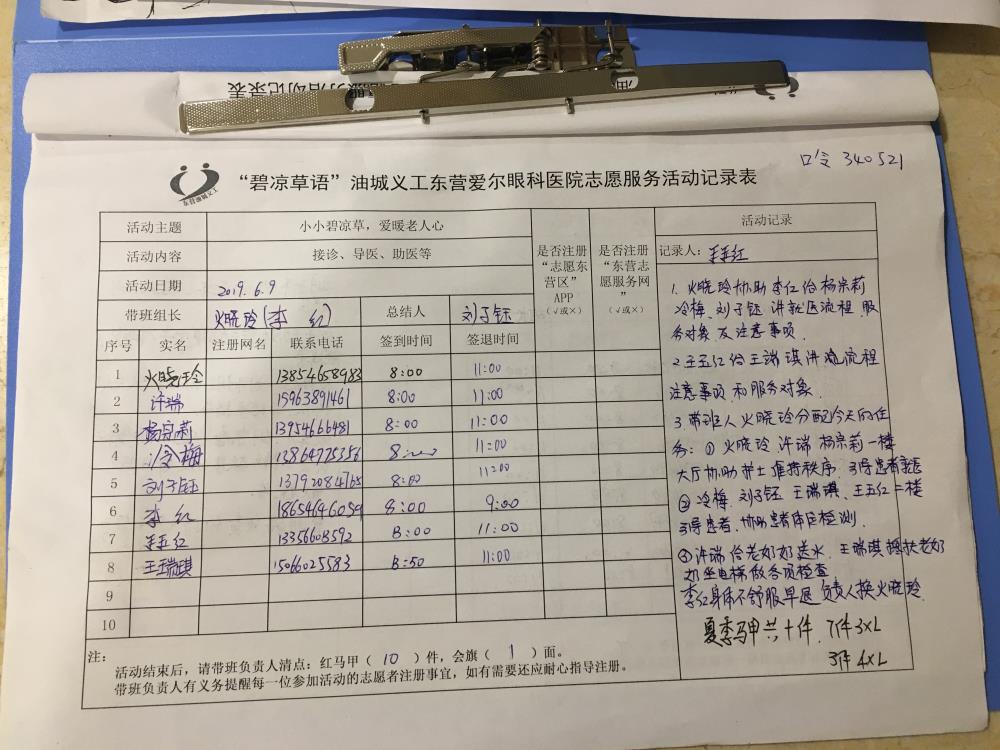 口令 340521
东营油城义工
“碧凉草语”油城义工东营爱尔眼科医院志愿服务活动记录表
活动主题 小小碧凉草，爱暖老人心
活动内容 接诊、导医、助医等
活动日期 2019.6.9
带班组长 火晓玲(李 红) 总结人 刘子钰
是否注册“志愿东营区”APP（√或×）
是否注册“东营志愿服务网”（√或×）
序号 实名 注册网名 联系电话 签到时间 签退时间
1 火晓玲 13854658983 8:00 11:00
2 许瑞 15963891461 8:00 11:00
3 杨宗莉 13954666481 8:00 11:00
4 冷梅 13864775356 8:00 11:00
5 刘子钰 13792084765 8:00 11:00
6 李红 18654646059 8:00 9:00
7 王玉红 13356608592 8:00 11:00
8 王瑞琪 15066025583 8:50 11:00
9
10
注：
活动结束后，请带班负责人清点：红马甲（ 10 ）件，会旗（ 1 ）面。
带班负责人有义务提醒每一位参加活动的志愿者注册事宜，如有需要还应耐心指导注册。
活动记录
记录人：王玉红
1. 火晓玲协助李红给杨宗莉
冷梅、刘子钰 讲就医流程、服
务对象 及注意事项
2 王玉红给王瑞琪讲 流程
注意事项 和服务对象
3 带班人火晓玲分配今天的任
务：① 火晓玲 许瑞 杨宗莉一楼
大厅协助护士维持秩序、引导患者就医
② 冷梅、刘子钰 王瑞琪、王玉红二楼
引导患者、协助患者体检检测
④ 许瑞给老奶奶送水、王瑞琪搀扶老奶
奶坐电梯做各项检查
李红身体不舒服早退 负责人换火晓玲
夏季马甲共十件、7件3XL
3件4XL